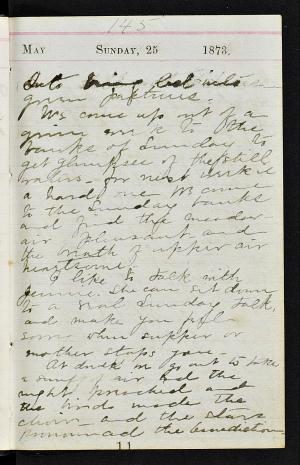 145
MAY SUNDAY, 25 1873.
into
green pastures.
We come up out of a
grim week to the
banks of Sunday to
get glimpses of the still
waters. Our week
a hard one We come
to the Sunday banks
and find the meadow
air pleasant and
the breath of upper air
heartsome.
I like to talk with
Jennie. She can sit down
to a real Sunday talk,
and make you feel
sorry when supper or
mother stops you.
At dusk we go out to take
a snuff of air and the
night preached and
the birds made the
choir and the stars
pronounced the benediction
11